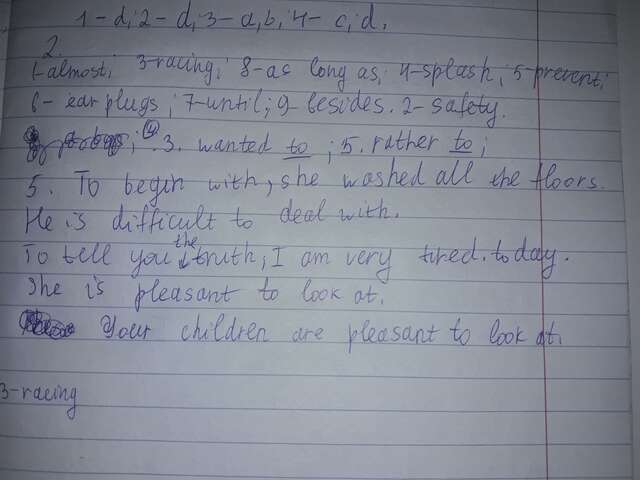 1-d; 2-d; 3-a,b; 4-c,d.
2.
1-almost; 3-racing; 8-as long as; 4-splash; 5-prevent;
6-earplugs; 7-until; 9-besides. 2-safety.
④ 3. wanted to; 5. rather to;
5. To begin with, she washed all the floors.
He is difficult to deal with.
To tell you the truth, I am very tired. today.
She is pleasant to look at.
Your children are pleasant to look at.
3-racing